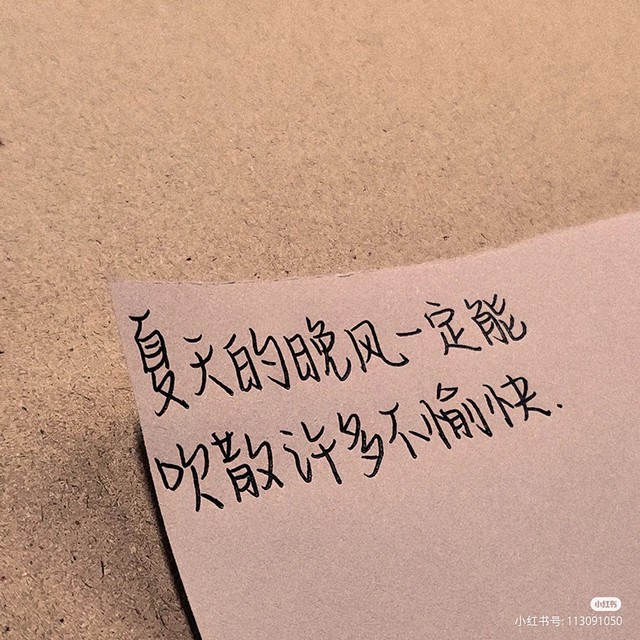 夏天的晚风一定能
吹散许多不愉快.
小红书
小红书号: 113091050